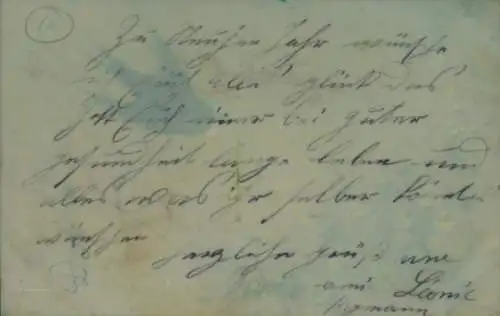 Zu Neuhen Jahr wünsche
glück das
Gott Euch imer bei guter
gesundheit lange leben und
alles was ihr selber könt
wünschen
herzliche grüße
Leonie